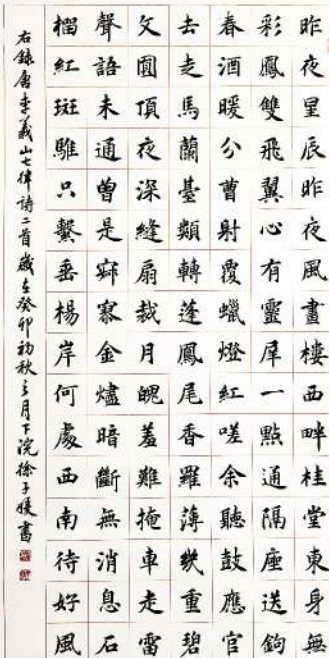 昨夜星辰昨夜風畫樓西畔桂堂東身無
彩鳳雙飛翼心有靈犀一點通隔座送鉤
春酒暖分曹射覆蠟燈紅嗟余聽鼓應官
去走馬蘭臺類轉蓬鳳尾香羅薄幾重碧
文圓頂夜深縫扇裁月魄羞難掩車走雷
聲語未通曾是寂寥金燼暗斷無消息石
榴紅斑騅只繫垂楊岸何處西南待好風
右錄唐李義山七律詩二首歲在癸卯初秋之月下浣徐子媛書